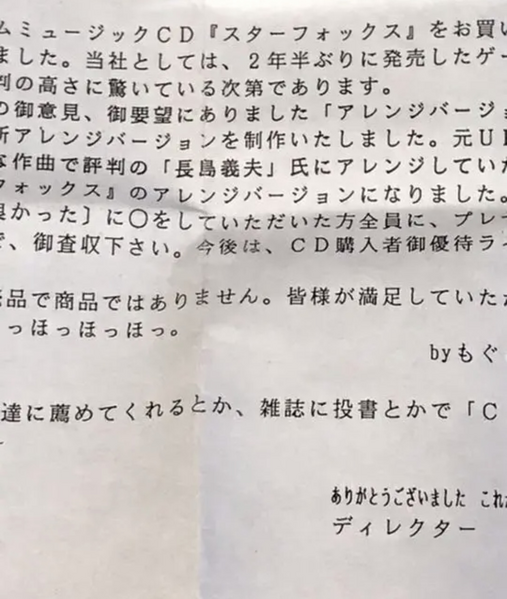 ムミュージックCD『スターフォックス』をお買い
ました。当社としては、2年半ぶりに発売したゲー
判の高さに驚いている次第であります。
の御意見、御要望にありました「アレンジバージョ
新アレンジバージョンを制作いたしました。元UP
な作曲で評判の「長島義夫」氏にアレンジしていた
フォックス』のアレンジバージョンになりました。
良かった〕に○をしていただいた方全員に、プレ
で、御査収下さい。今後は、CD購入者御優待ラ
品で商品ではありません。皆様が満足していた
っほっほっほっ。
byもぐ
達に薦めてくれるとか、雑誌に投書とかで「C
ありがとうございました これ
ディレクター